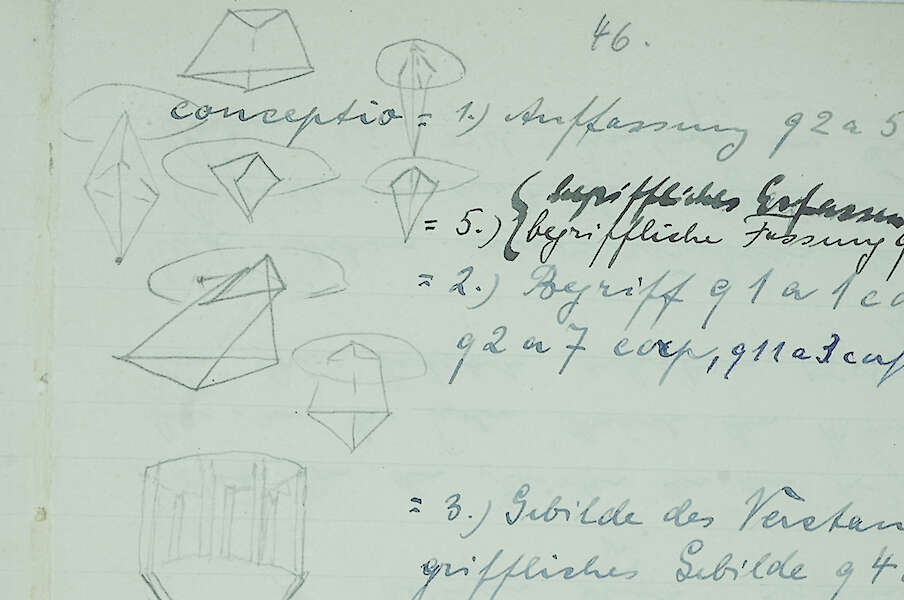 46.
conceptio = 1.) Auffassung q 2 a 5
{ begriffliches Erfassen
= 5.) { begriffliche Fassung q
= 2.) Begriff q 1 a 1 co
q 2 a 7 corp, q 11 a 3 corp
= 3.) Gebilde des Verstan
griffliches Gebilde q 4.